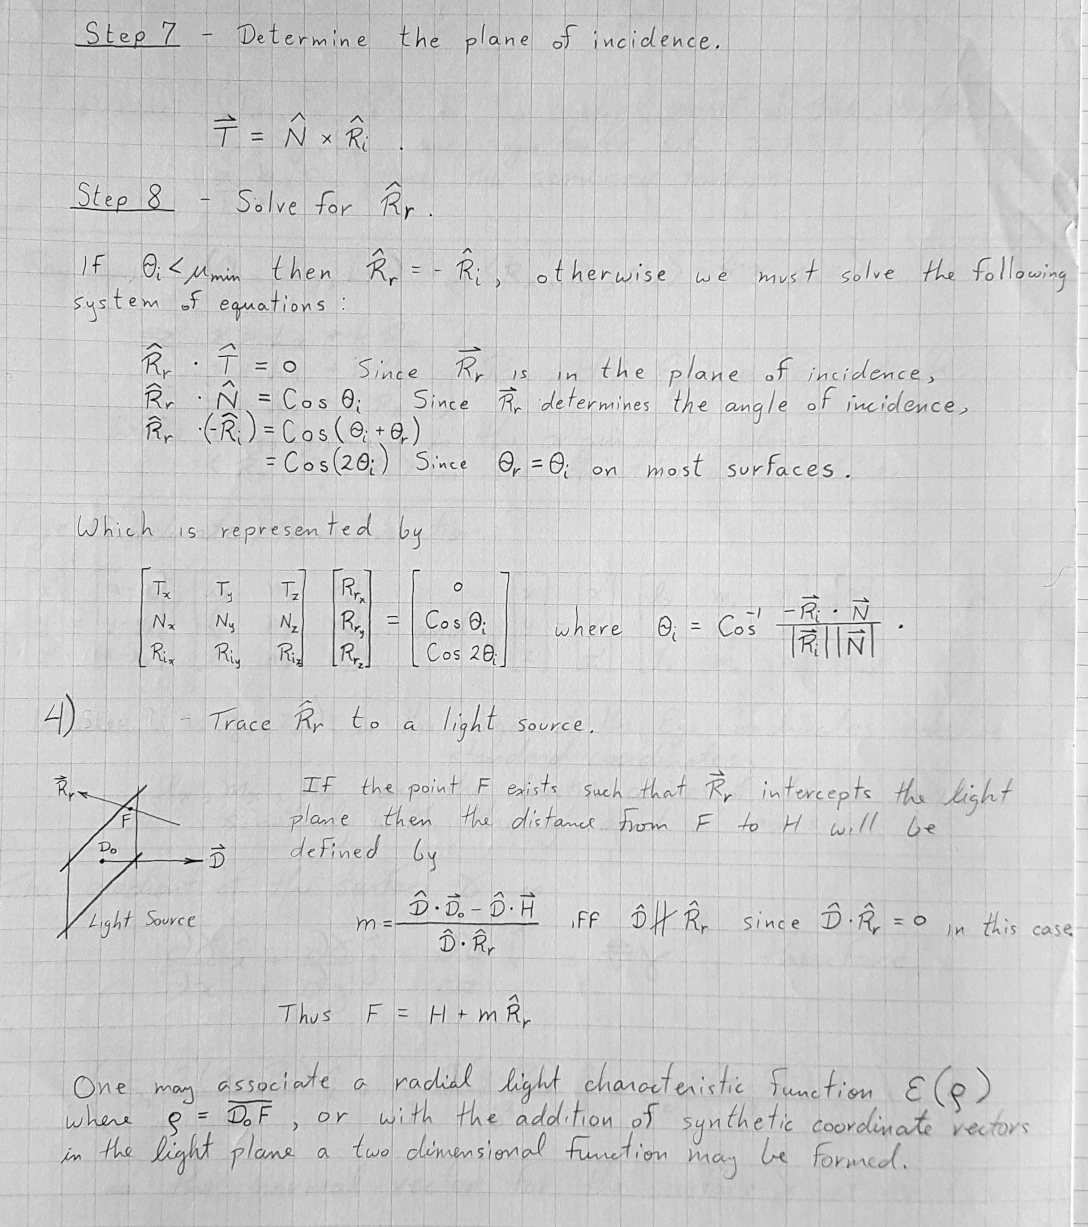 Step 7 - Determine the plane of incidence.
T⃗ = N̂ × R̂ᵢ .
Step 8 - Solve for R̂ᵣ.
If θᵢ < μmin then R̂ᵣ = - R̂ᵢ, otherwise we must solve the following
system of equations :
R̂ᵣ · T̂ = 0 Since R⃗ᵣ is in the plane of incidence,
R̂ᵣ · N̂ = Cos θᵢ Since R⃗ᵣ determines the angle of incidence,
R̂ᵣ ·(-R̂ᵢ) = Cos(θᵢ + θᵣ)
= Cos(2θᵢ) Since θᵣ = θᵢ on most surfaces.
Which is represented by
[Tx Ty Tz] [Rrx] = [0]
[Nx Ny Nz] [Rry] = [Cos θᵢ] where θᵢ = Cos⁻¹ (-R⃗ᵢ · N⃗)/(|R⃗ᵢ||N⃗|) .
[Rix Riy Riz] [Rrz] = [Cos 2θᵢ]
4) - Trace R̂ᵣ to a light source.
R⃗ᵣ
F
D₀
D⃗
Light Source
If the point F exists such that R⃗ᵣ intercepts the light
plane then the distance from F to H will be
defined by
m = (D̂·D⃗₀ - D̂·H⃗)/(D̂·R̂ᵣ) iff D̂ ∦ R̂ᵣ since D̂·R̂ᵣ = 0 in this case
Thus F = H + m R̂ᵣ
One may associate a radial light characteristic function Ɛ(ρ)
where ρ = D₀F̅, or with the addition of synthetic coordinate vectors
in the light plane a two dimensional function may be formed.